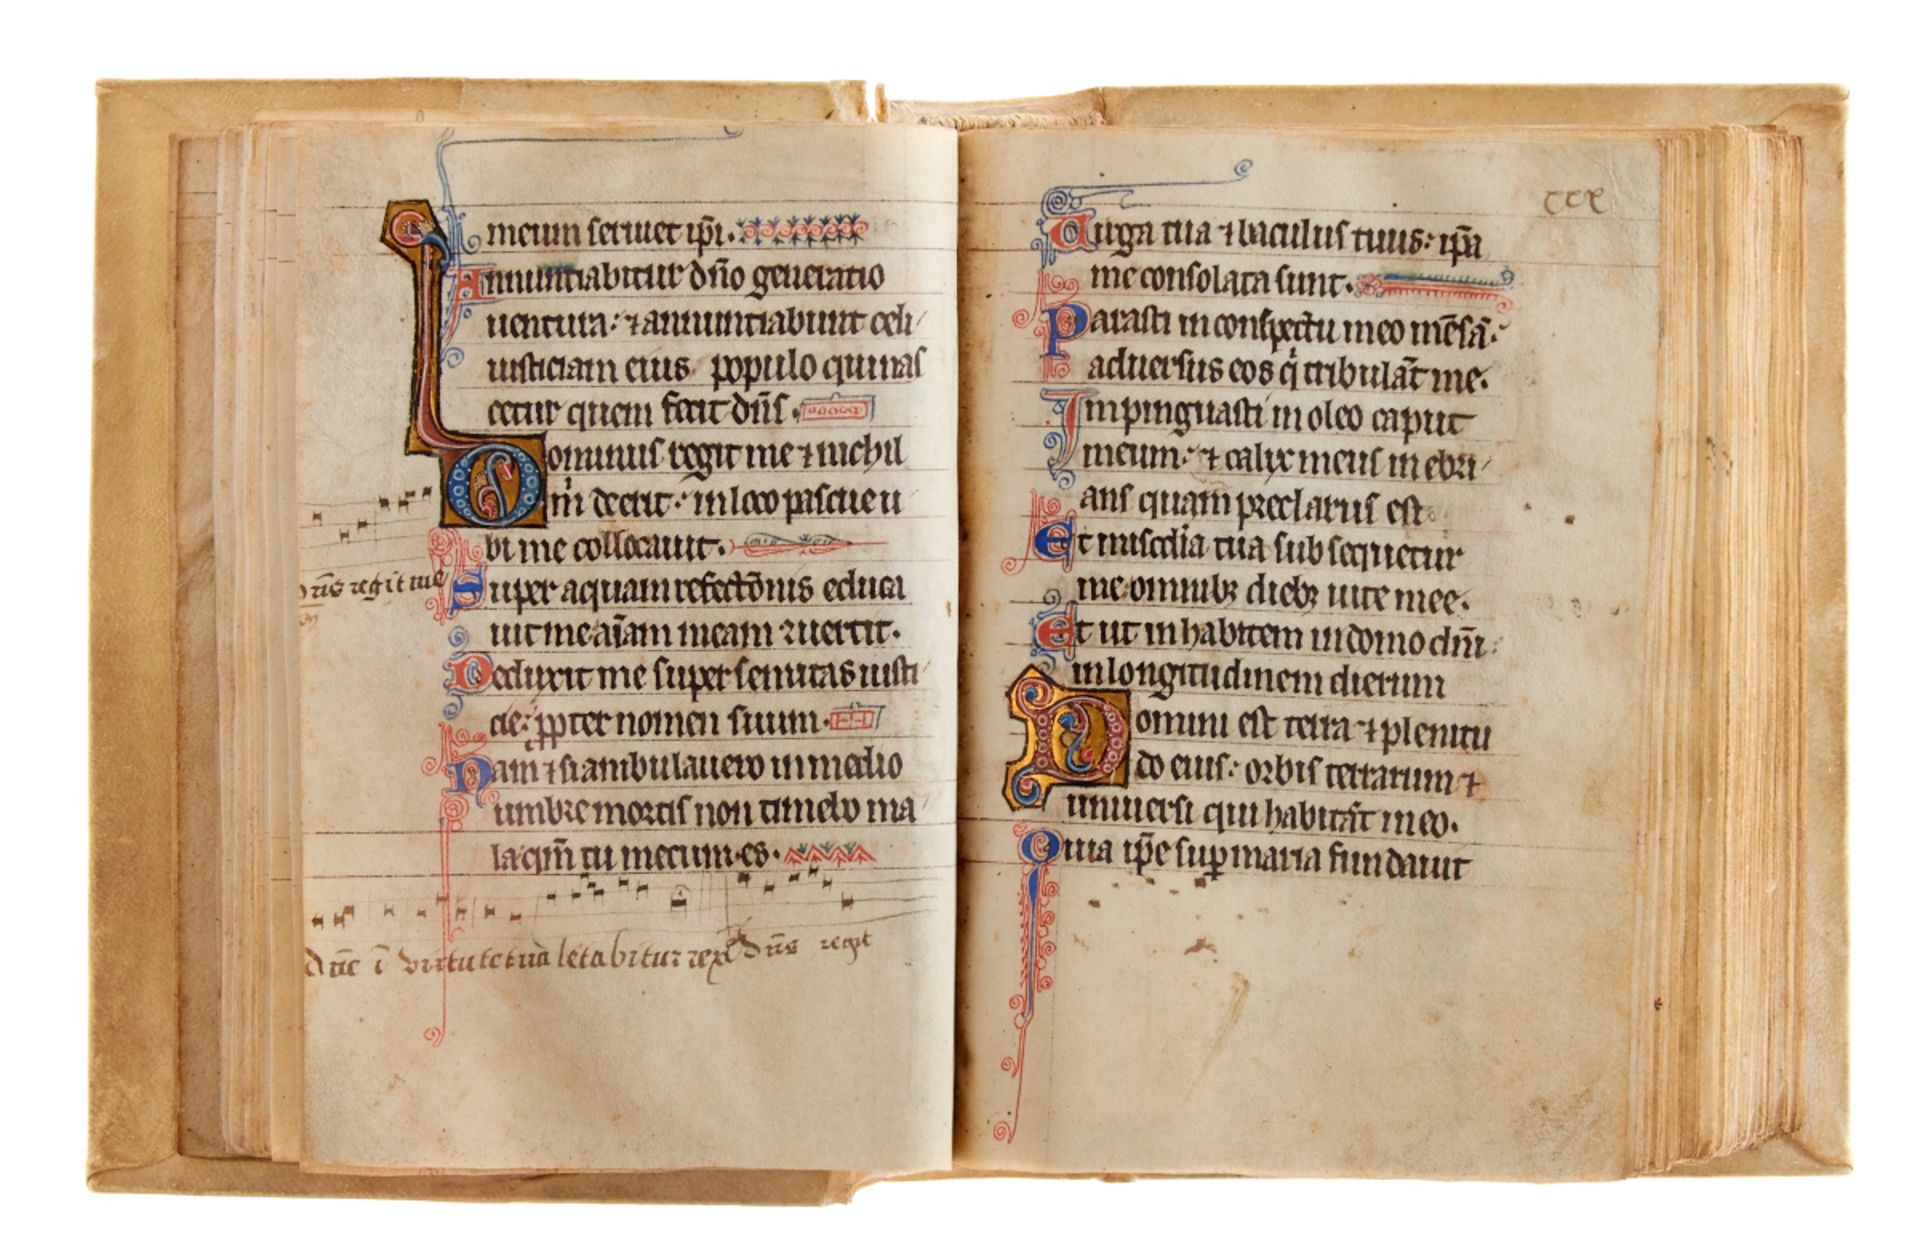 meum seruiet ip̄i.
Annuntiabitur dn̄o generatio
uentura: ⁊ annuntiabunt celi
iusticiam eius populo qui nas
cetur quem fecit dn̄s.
Dominus regit me ⁊ nichil
m̍ deerit: in loco pascue u
bi me collocauit.
dn̄s regit me
Super aquam refectōnis educa
uit me ai̅am meam ɔuertit.
Deduxit me super semitas iusti
cie: ꝓpter nomen suum.
Nam ⁊ si ambulauero in medio
umbre mortis non timebo ma
la: qm̄ tu mecum es.
dn̄e ī virtute tua letabitur rex dn̄s regit
ccx
Uirga tua ⁊ baculus tuus: ip̄a
me consolata sunt.
Parasti in conspectu meo mēsā:
aduersus eos q̍ tribulāt me.
Inpinguasti in oleo caput
meum: ⁊ calix meus inebri
ans quam preclarus est
Et misc̄dia tua subsequetur
me omnibꝫ diebꝫ uite mee.
Et ut inhabitem in domo dn̄i:
in longitudinem dierum
Domini est terra ⁊ plenitu
do eius: orbis terrarum ⁊
uniuersi qui habitāt in eo.
Quia ip̄e sup̄ maria fundauit